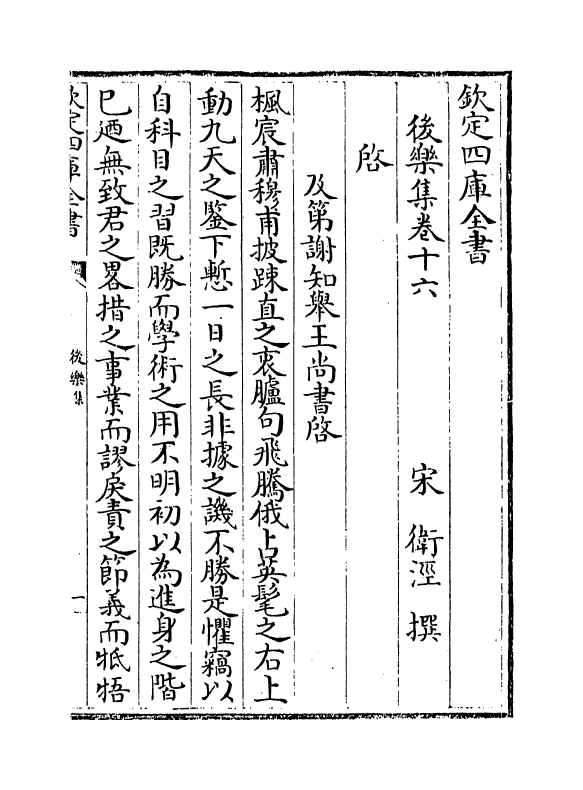 欽定四庫全書
後樂集卷十六
宋 衛涇 撰
啓
及第謝知舉王尚書啓
楓宸肅穆甫披踈直之衷臚句飛騰俄占英髦之右上
動九天之鑒下慙一日之長非據之譏不勝是懼竊以
自科目之習既勝而學術之用不明初以為進身之階
已廼無致君之畧措之事業而謬戾責之節義而牴牾
欽定四庫全書
後樂集
一